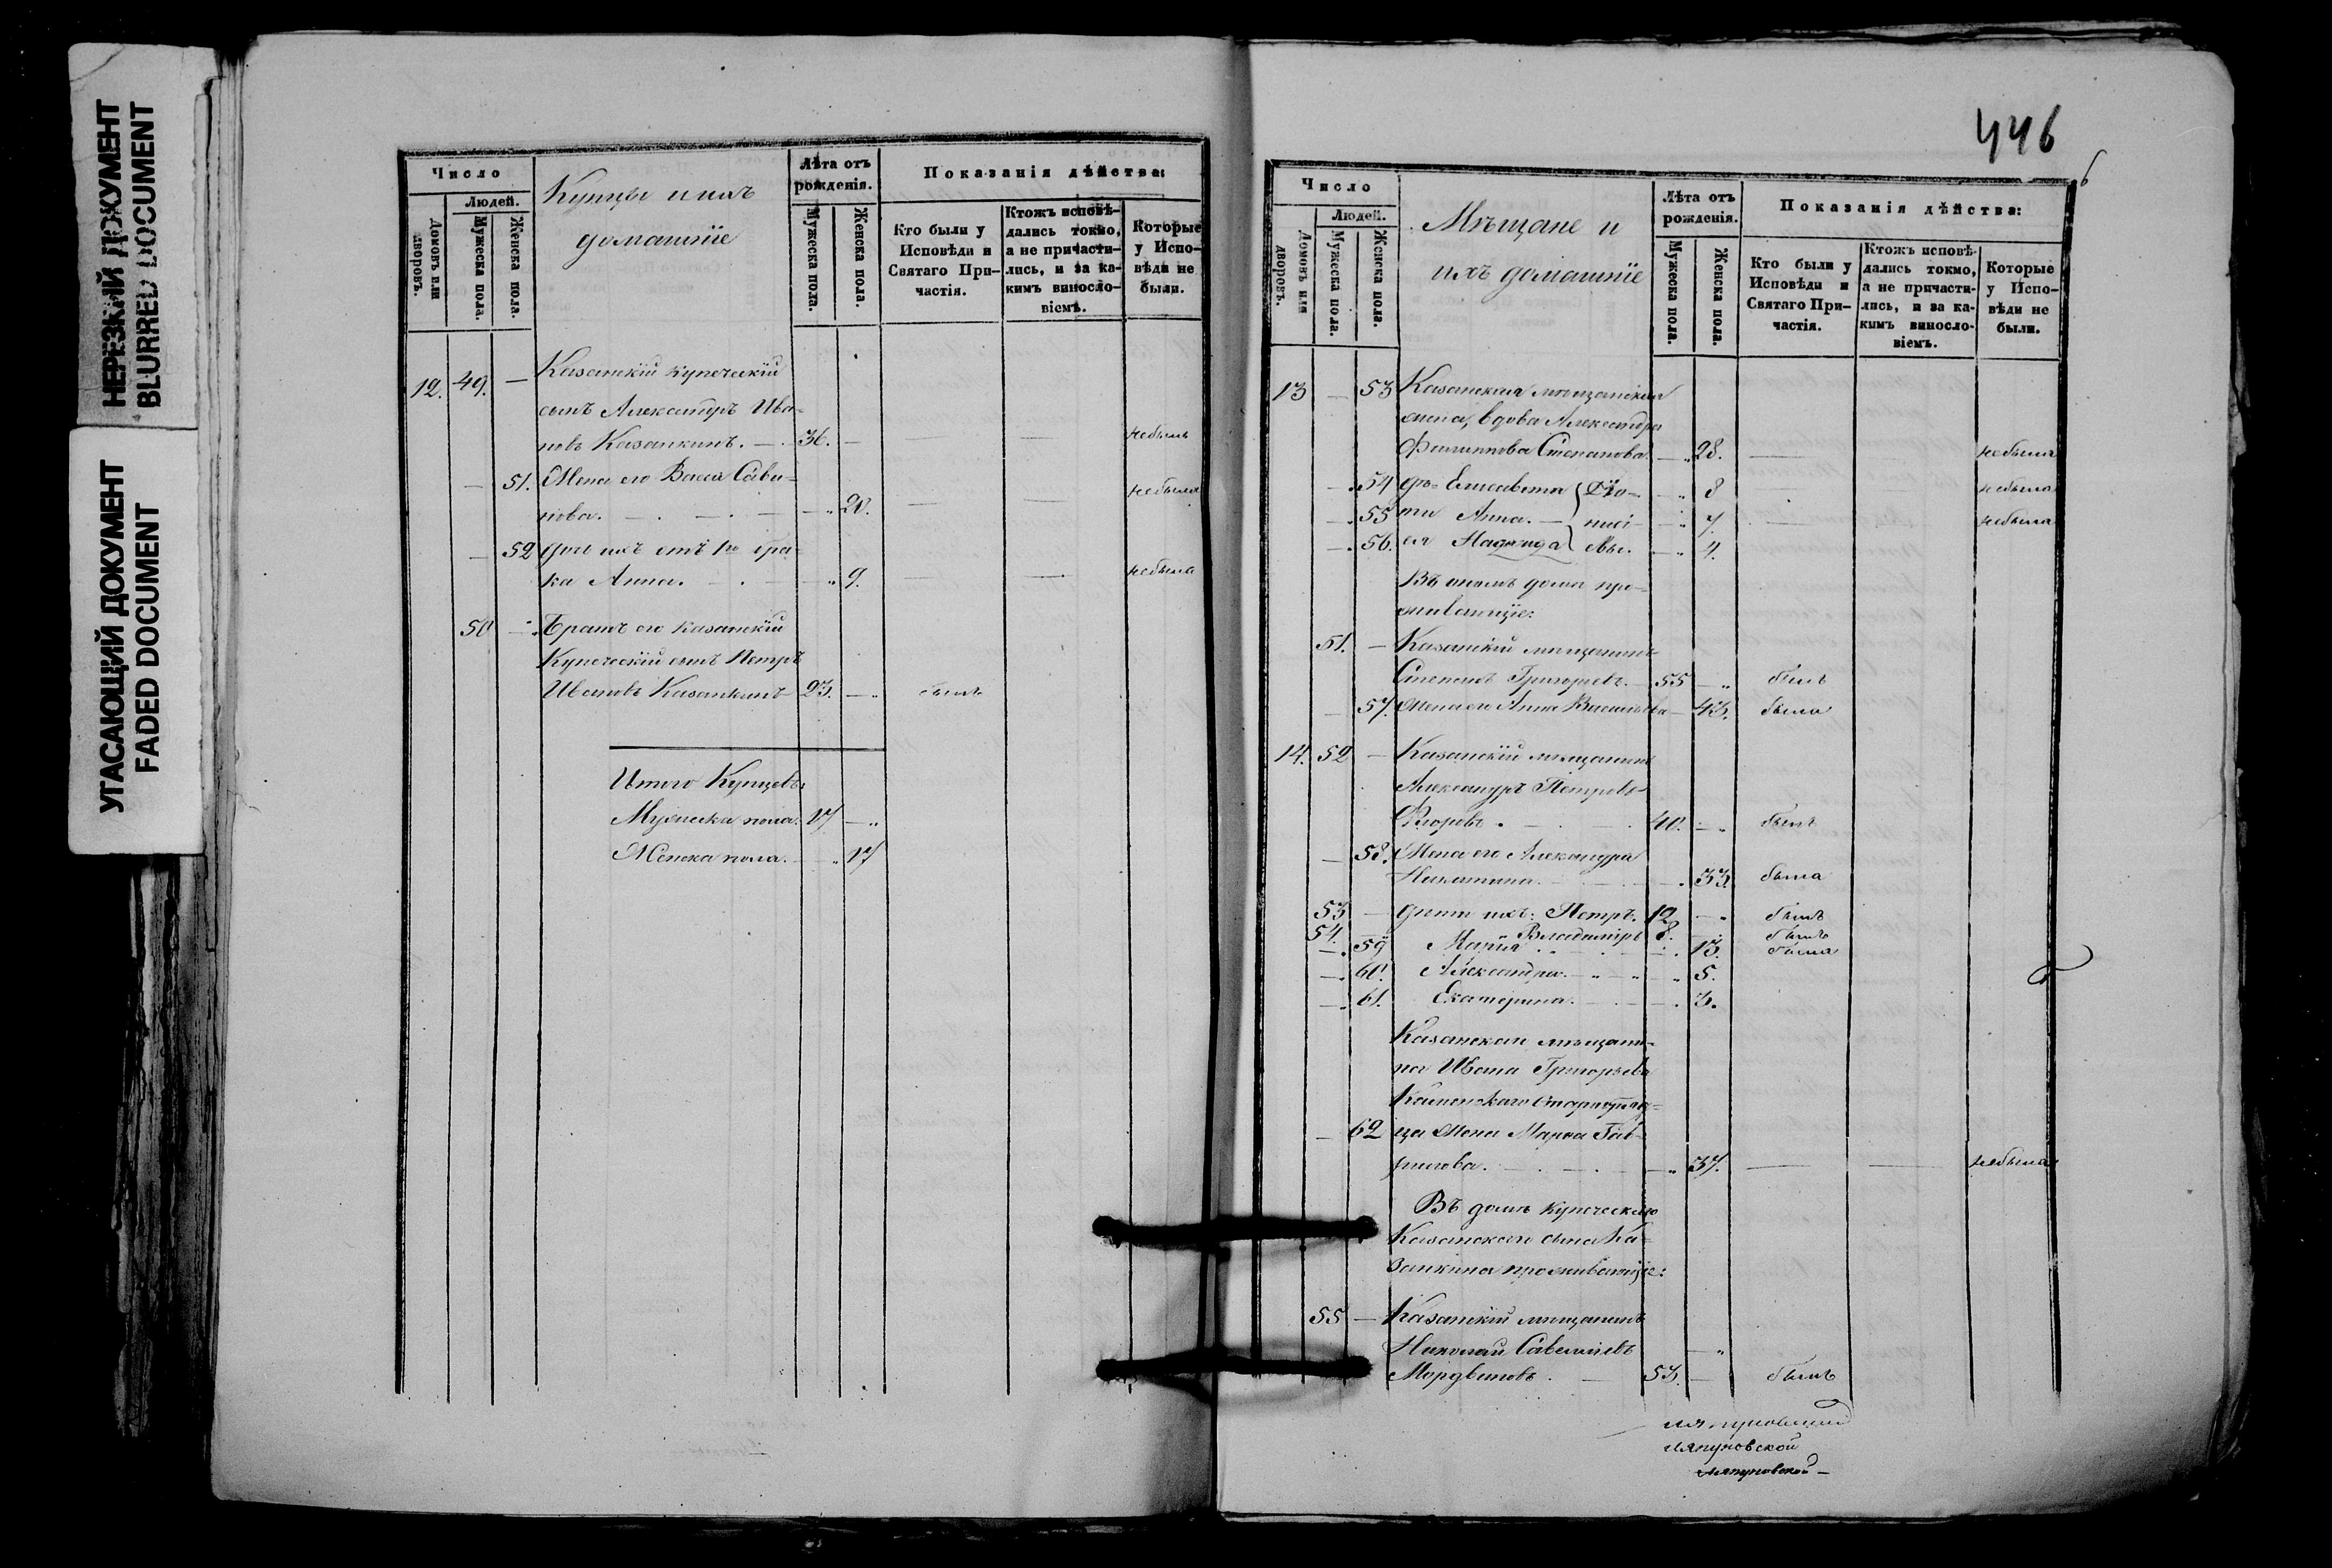 НЕРЕЗКИЙ ДОКУМЕНТ
BLURRED DOCUMENT
УГАСАЮЩИЙ ДОКУМЕНТ
FADED DOCUMENT
Число
Людей.
Домовъ или дворовъ.
Мужеска пола.
Женска пола.
Купцы и ихъ
домашніе
Лѣта отъ рожденія.
Мужеска пола.
Женска пола.
Показанія дѣйства:
Кто были у Исповѣди и Святаго При-частія.
Ктожъ исповѣ-дались токмо, а не причасти-лись, и за ка-кимъ виносло-віемъ.
Которые у Испо-вѣди не были.
12. 49. — Казанскій купеческій
сынъ Александръ Ива-
новъ Казанкинъ. — 36. — небылъ
— 51. Жена его Васса Сави-
нова. — 20. небыла
— 52 дочь ихъ отъ 1го бра-
ка Анна. — 9. небыла
50 — Братъ его казанскій
Купеческій сынъ Петръ
Ивановъ Казанкинъ 23. — былъ
Итого Купцовъ:
Мужеска пола. 17 —
Женска пола. — 17
446
Число
Людей.
Домовъ или дворовъ.
Мужеска пола.
Женска пола.
Мѣщане и
ихъ домашніе
Лѣта отъ рожденія.
Мужеска пола.
Женска пола.
Показанія дѣйства:
Кто были у Исповѣди и Святаго При-частія.
Ктожъ исповѣ-дались токмо, а не причасти-лись, и за ка-кимъ винослo-віемъ.
Которые у Испо-вѣди не были.
13 — 53 Казанская мѣщанская
жена, вдова Александра
Филиппова Степанова. — 28. — небыла
— 54 до- Елисавета — 8 небыла
— 55 ти Анна. — 7. — небыла
— 56. ея Надежда — 4.
Въ ономъ домѣ про-
живающіе:
51. — Казанскій мѣщанинъ
Степанъ Григорьевъ. — 55 — былъ
— 57. Жена его Анна Васильева — 43. была
14. 52 — Казанскій мѣщанинъ
Александръ Петровъ
40. — былъ
— 58. Жена его Александра
Никитина. — 33. была
53 — дѣти ихъ: Петръ. 12 — былъ
54. Владиміръ 8. былъ
— 59 Марія — 13. была
— 60. Александра. — 5.
— 61. Екатерина. — 3.
Казанскаго мѣщани-
на Ивана Григорьева
— 62 ца жена Марѳа Гав-
рилова. — 37. — небыла
Въ домѣ купеческаго
Казанскаго сына Ка-
занкина проживающіе:
55 — Казанскій мѣщанинъ
Николай Савельевъ —
Мордвиновъ. — 53. — былъ
Ляпуновской
Ляпуновской —